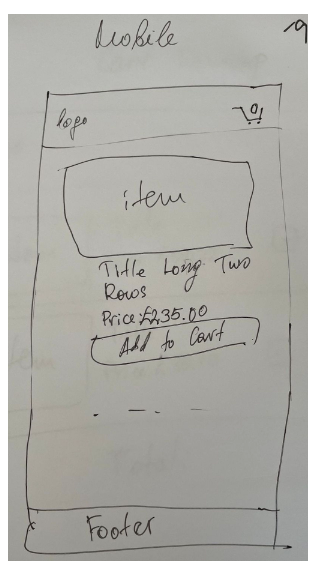 Mobile
logo
0
item
Title Long Two
Rows
Price:£235.00
Add to Cart
. — . — —
Footer